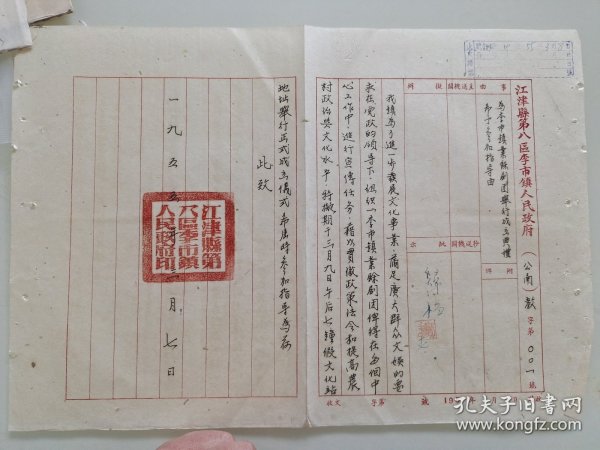 江津縣第八區李市鎮人民政府(公函)教字第00一號
事由
為李市鎮業餘劇團舉行成立典禮
希予參加指導由
主送機關
擬辦
附件
抄送機關
批示
我鎮為了進一步發展文化事業,滿足廣大群众文娱的要
求在党政的領導下,組织一李市镇業餘劇团俾得在每個中
心工作中進行宣傳任务,藉以貫徹政策法令和提高農
村政治與文化水平,特擬期于三月九日午后七鐘假文化站
地址舉行正式成立儀式希屆時參加指導為荷
此致
江津縣第
八區李市鎮
人民政府印
一九五五年三月七日
收文 字第 號 19 年 月
孔夫子旧书网
kongfz.com